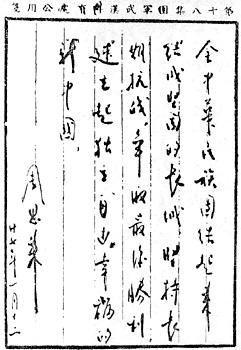 第十八集團軍武漢辦事處公用箋
全中華民族團結起來
結成堅固的長城堅持長
期抗戰,爭取最後勝利,
建立起獨立自由幸福的
新中國。
周恩來
廿七年一月十二